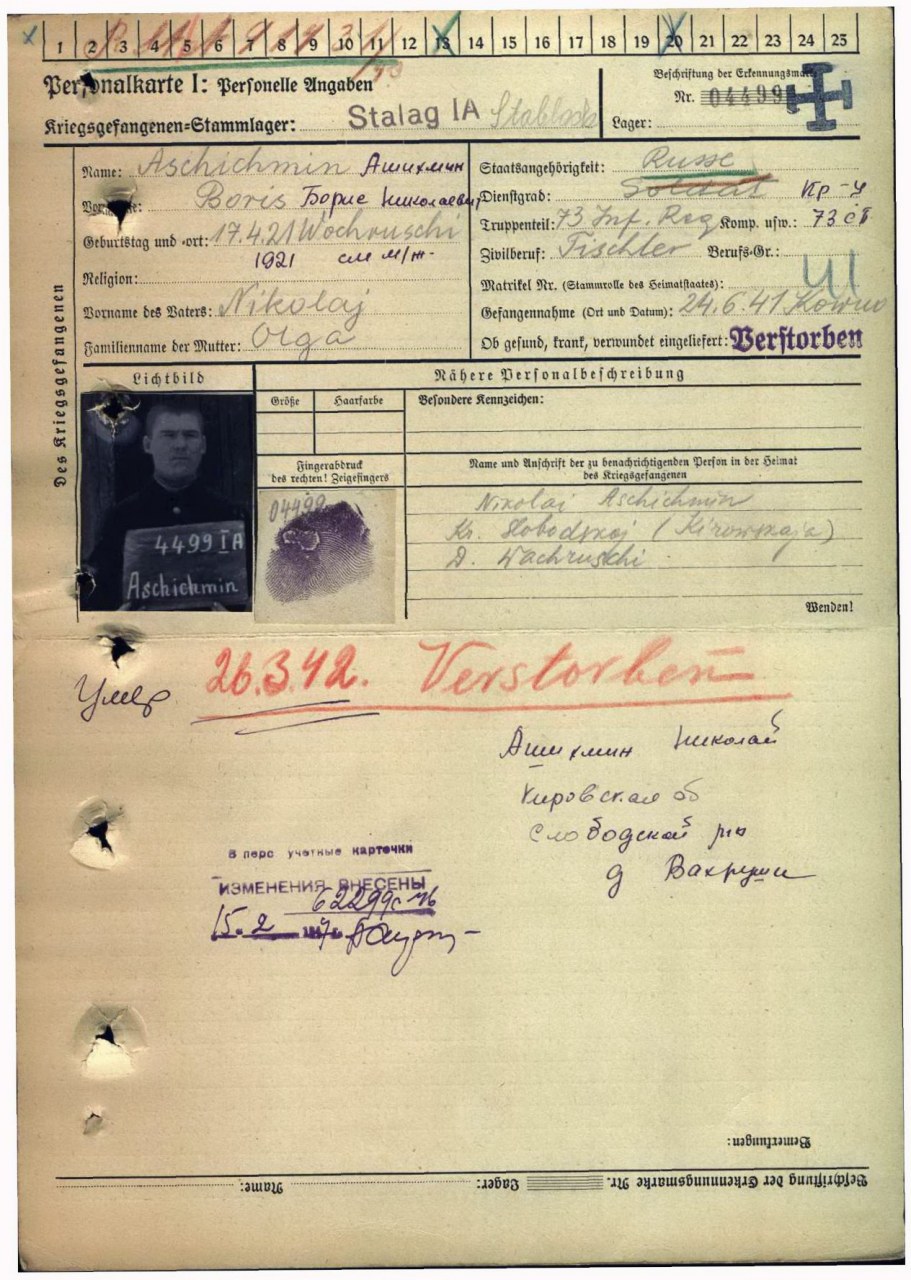 1 2 3 4 5 6 7 8 9 10 11 12 13 14 15 16 17 18 19 20 21 22 23 24 25
Personalkarte I: Personelle Angaben
Beschriftung der Erkennungsmarke
Nr. 04499
Kriegsgefangenen-Stammlager: Stalag IA Stablack
Lager:
Des Kriegsgefangenen
Name: Aschichmin Ашихмин
Vorname: Boris Борис Николаевич
Geburtstag und -ort: 17.4.21 Wochruschi
1921 см м/ж
Religion:
Vorname des Vaters: Nikolaj
Familienname der Mutter: Olga
Staatsangehörigkeit: Russe
Dienstgrad: Soldat Кр-ц
Truppenteil: 73 Inf. Reg Komp. usw.: 73 сп
Zivilberuf: Tischler Berufs-Gr.:
Matrikel Nr. (Stammrolle des Heimatstaates):
Gefangennahme (Ort und Datum): 24.6.41 Kowno
Ob gesund, krank, verwundet eingeliefert: Verstorben
Lichtbild
Nähere Personalbeschreibung
Größe
Haarfarbe
Besondere Kennzeichen:
Fingerabdruck
des rechten! Zeigefingers
04499
4499 IA
Aschichmin
Name und Anschrift der zu benachrichtigenden Person in der Heimat
des Kriegsgefangenen
Nikolai Aschichmin
Kr. Slobodskoj (Kirowskaja)
D. Wachruschi
Wenden!
Умер 26.3.42. Verstorben
Ашихмин Николай
Кировская об
Слободской р-н
д Вахруши
В перс учетные карточки
ИЗМЕНЕНИЯ ВНЕСЕНЫ
62299с
15. 2
Bemerkungen:
Beschriftung der Erkennungsmarke Nr. Lager: Name: